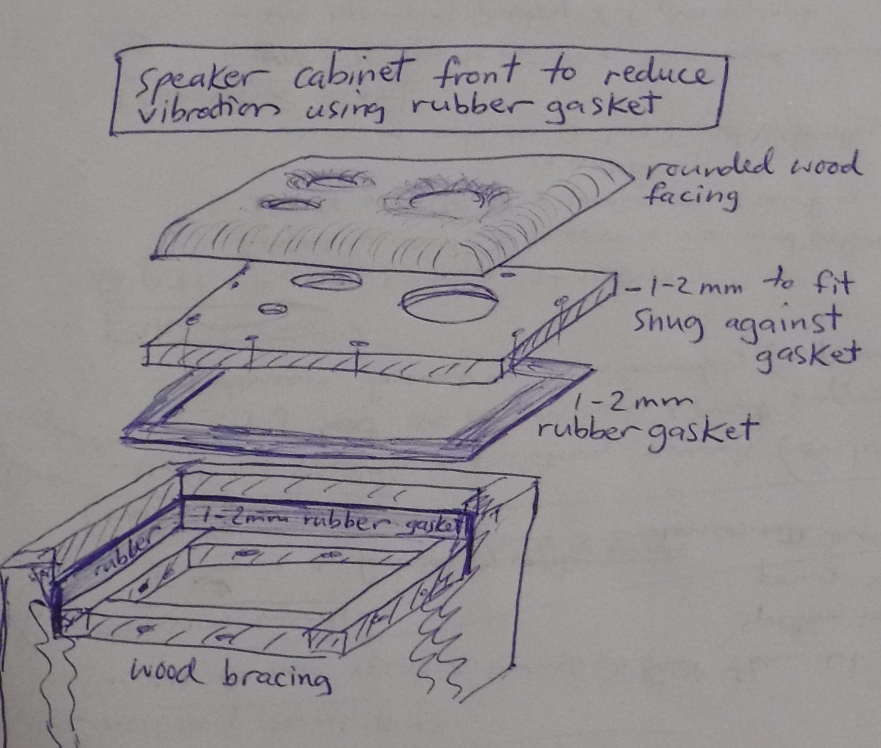 speaker cabinet front to reduce
vibration using rubber gasket
rounded wood
facing
-1-2mm to fit
snug against
gasket
1-2mm
rubber gasket
1-2mm rubber gasket
rubber
wood bracing